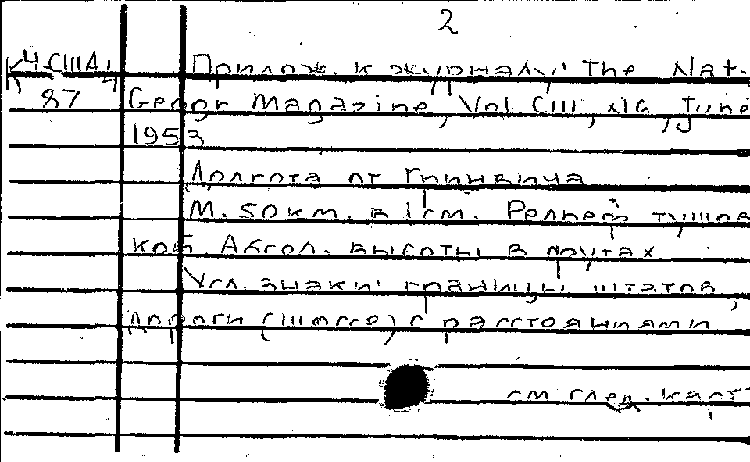 2
К4 США4 Прилож. к журналу: The Nat.
87 Geogr Magazine, Vol CIII, №6, June
1953
Долгота от Гринвича
М. 50 км. в 1 см. Рельеф тушев
кой Абсол. высоты в футах
Усл. знаки: границы штатов,
дороги (шоссе) с расстояниями
см след. карт